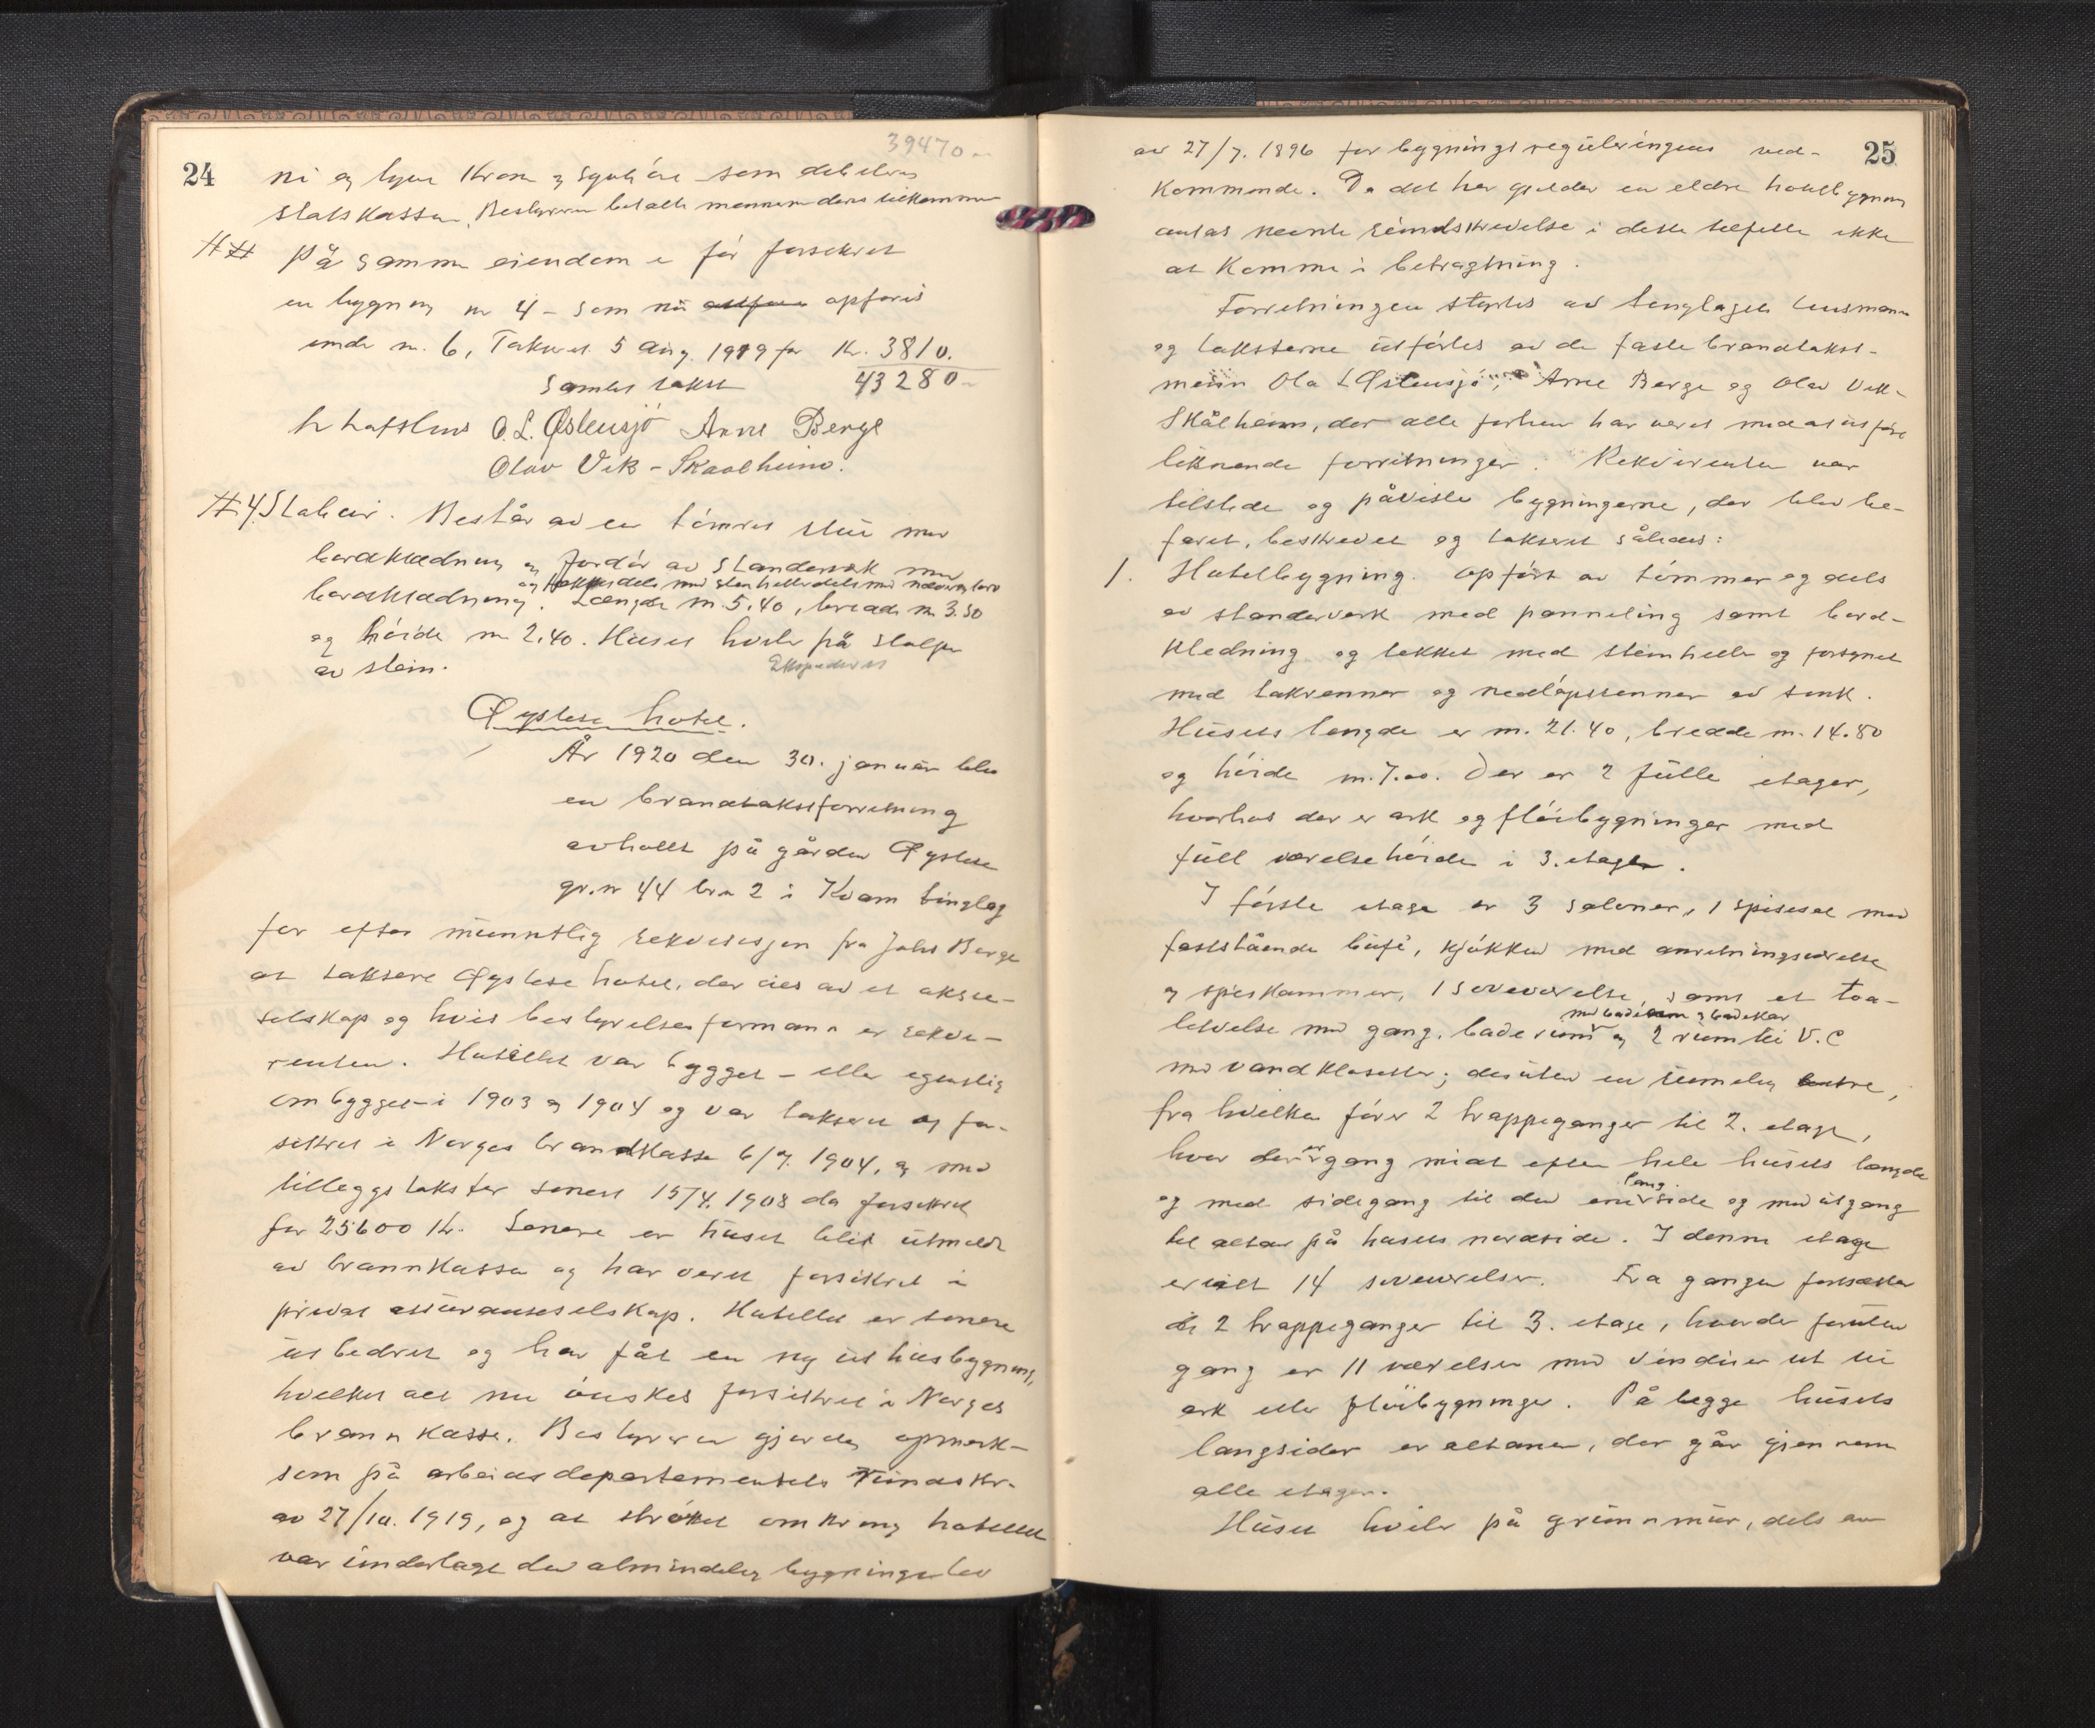 39470.-
24
ni og tyve Kroner og sytti øre som debiteres
statskassen. Bestyreren betalte mennene deres tilkommende
På samme eiendom er før forsikret
en bygning nr 4 – som nu opføres
under nr. 6, Takseret 5 aug. 1919 for Kr. 3810.
Samlet takst 43280.-
O. L. Østensjö Arne Berge
Olav Vik - Skaalheim.
#4. Stabur. Består av en tømret stue med
bordklædning og fordør av standerverk med
og tækket dels med stenheller dels med never og torv
bordklædning. Længde m. 5.40, bredde m 3.50
og høide m 2.40. Huset hviler på stolper
av stein.
Ekspederet
Øystese hotel.
År 1920 den 30. januar blev
en brandtakstforretning
avholdt på gården Øystese
gr.nr 44 br.nr 2 i Kvam tinglag
for efter munntlig rekvisisjon fra Johs Berge
at taksere Øystese hotel, der eies av et aksje-
selskap og hvis bestyrelsesformann er rekvi-
renten. Hotellet var bygget – eller egentlig
ombygget – i 1903 og 1904 og var takseret og for-
sikret i Norges brandkasse 6/7. 1904, og med
tilleggstakster senest 15/4. 1908 da forsikret
for 25600 Kr. Senere er huset blit utmeldt
av brannkassen og har veret forsikret i
privat assuranseselskap. Hotellet er senere
utbedret og har fåt en ny uthusbygning,
hvilket alt nu ønskes forsikret i Norges
brannkasse. Bestyreren gjorde opmerk-
som på arbeidsdepartementets rundskr.
av 27/10. 1919, og at strøket omkring hotellet
var underlagt den almindelig bygningslov
25
av 27/7. 1896 for bygningsreguleringens ved-
kommende. Da det her gjelder en eldre hotelbygning
antas nevnte rundskrivelse i dette tilfelle ikke
at komme i betragtning.
Forretningen styrtes av tinglagets lensmann
og taksterne utførtes av de faste brandtakst-
menn Ola L Østensjø, Arne Berge og Olav Vik-
Skålheim, der alle forhen har veret med at utføre
liknende forretninger. Rekvirenten var
tilstede og påviste bygningerne, der blev be-
faret, beskrevet og takseret således:
1. Hotelbygning. opført av tømmer og dels
av standerverk med panneling samt bord-
kledning og tekket med steinheller og forsynet
med takrenner og nedløpsrenner av sink.
Husets længde er m. 21.40, bredde m. 14.80
og høide m. 7.00. Der er 2 fulle etager,
hvorhos der er ark og fløibygninger med
full verelsehøide i 3. etage.
I første etage er 3 saloner, 1 spisesal med
faststående bufé, kjøkken med anretningsverelse
og spiskammer, 1 soveverelse, samt et toa-
med badeovn og badekar
letverelse med gang, baderum og 2 rum til V.C
med vandklosetter; desuten en rumelig entre,
fra hvilken fører 2 trappeganger til 2. etage,
hvor der er gang midt efter hele husets længde
og med sidegang til den ene langside og med utgang
til altan på husets nordside. I denne etage
er ialt 14 soveverelser. Fra gangen fortsætter
de 2 trappeganger til 3. etage, hvor der foruten
gang er 11 verelser med vinduer ut til
ark eller fløibygninger. På begge husets
langsider er altaner, der går gjennem
alle etager.
Huset hviler på grunnmur, dels av